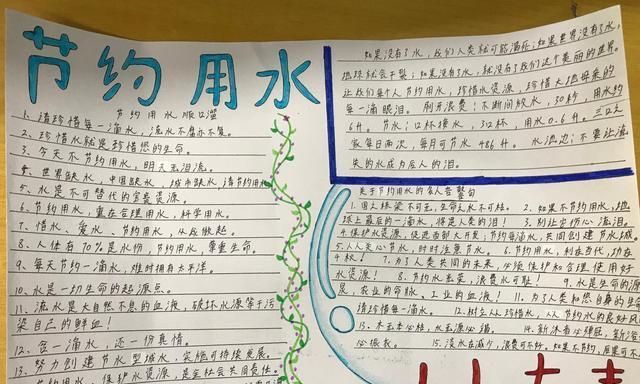 节约用水
节约用水顺口溜
1、请珍惜每一滴水，流水不腐永不复。
2、珍惜水就是珍惜您的生命。
3、今天不节约用水，明天无泪流。
4、世界缺水，中国缺水，城市缺水，请节约用水
5、水是不可替代的宝贵资源。
6、节约用水，重在合理用水，科学用水。
7、惜水、爱水、节约用水，从我做起。
8、人体有70%是水份，节约用水，尊重生命。
9、每天节约一滴水，难时拥有太平洋。
10、水是一切生命的起源点。
11、流水是大自然不息的血液，破坏水源等于污
染自己的鲜血！
12、贪一滴水，还一份真情。
13、努力创建节水型城水，实施可持续发展。
节约用水，保护水资源，是全社会共同责任。
如果没有了水，我们人类就可能满死；如果世界没有了水，
地球就会干裂；如果没有了水，就没有了我们这个美丽的世界。
让我们每个人节约用水，珍惜水资源，珍惜大地母亲的
每一滴眼泪。刷牙浪费！不断间放水，30秒，用水约
6升。节水：口杯接水，3口杯，用水0.6升。三口之
家每日两次，每月可节水486升。水流边：不要让流
失的水成为后人的泪。
关于节约用水的名人告警句
1、国土栋梁不可无，生命之水不可枯。2、如果不节约用水，地
球上最后的一滴水，将是人类的泪！3、别让宝伤心流泪。
4、保护水资源，促进西部大开发，节约每滴水，共同创建节水城
5、人人关心节水，时时注意节水。6、节约用水，利在当代，功在
7、为了人类共同的未来，必须维护和合理使用好
水资源！8、节约水光荣，浪费水可耻！9、水是生命的源
泉，农业的命脉，工业的血液！11、为了人类和您自身的生命
请珍惜每一滴水。12、树立人人珍惜水、人人节约水的良好风
13、木无本必枯，水无源必竭。
15、淡水在减少，浪费可不好。如果不节约，后果